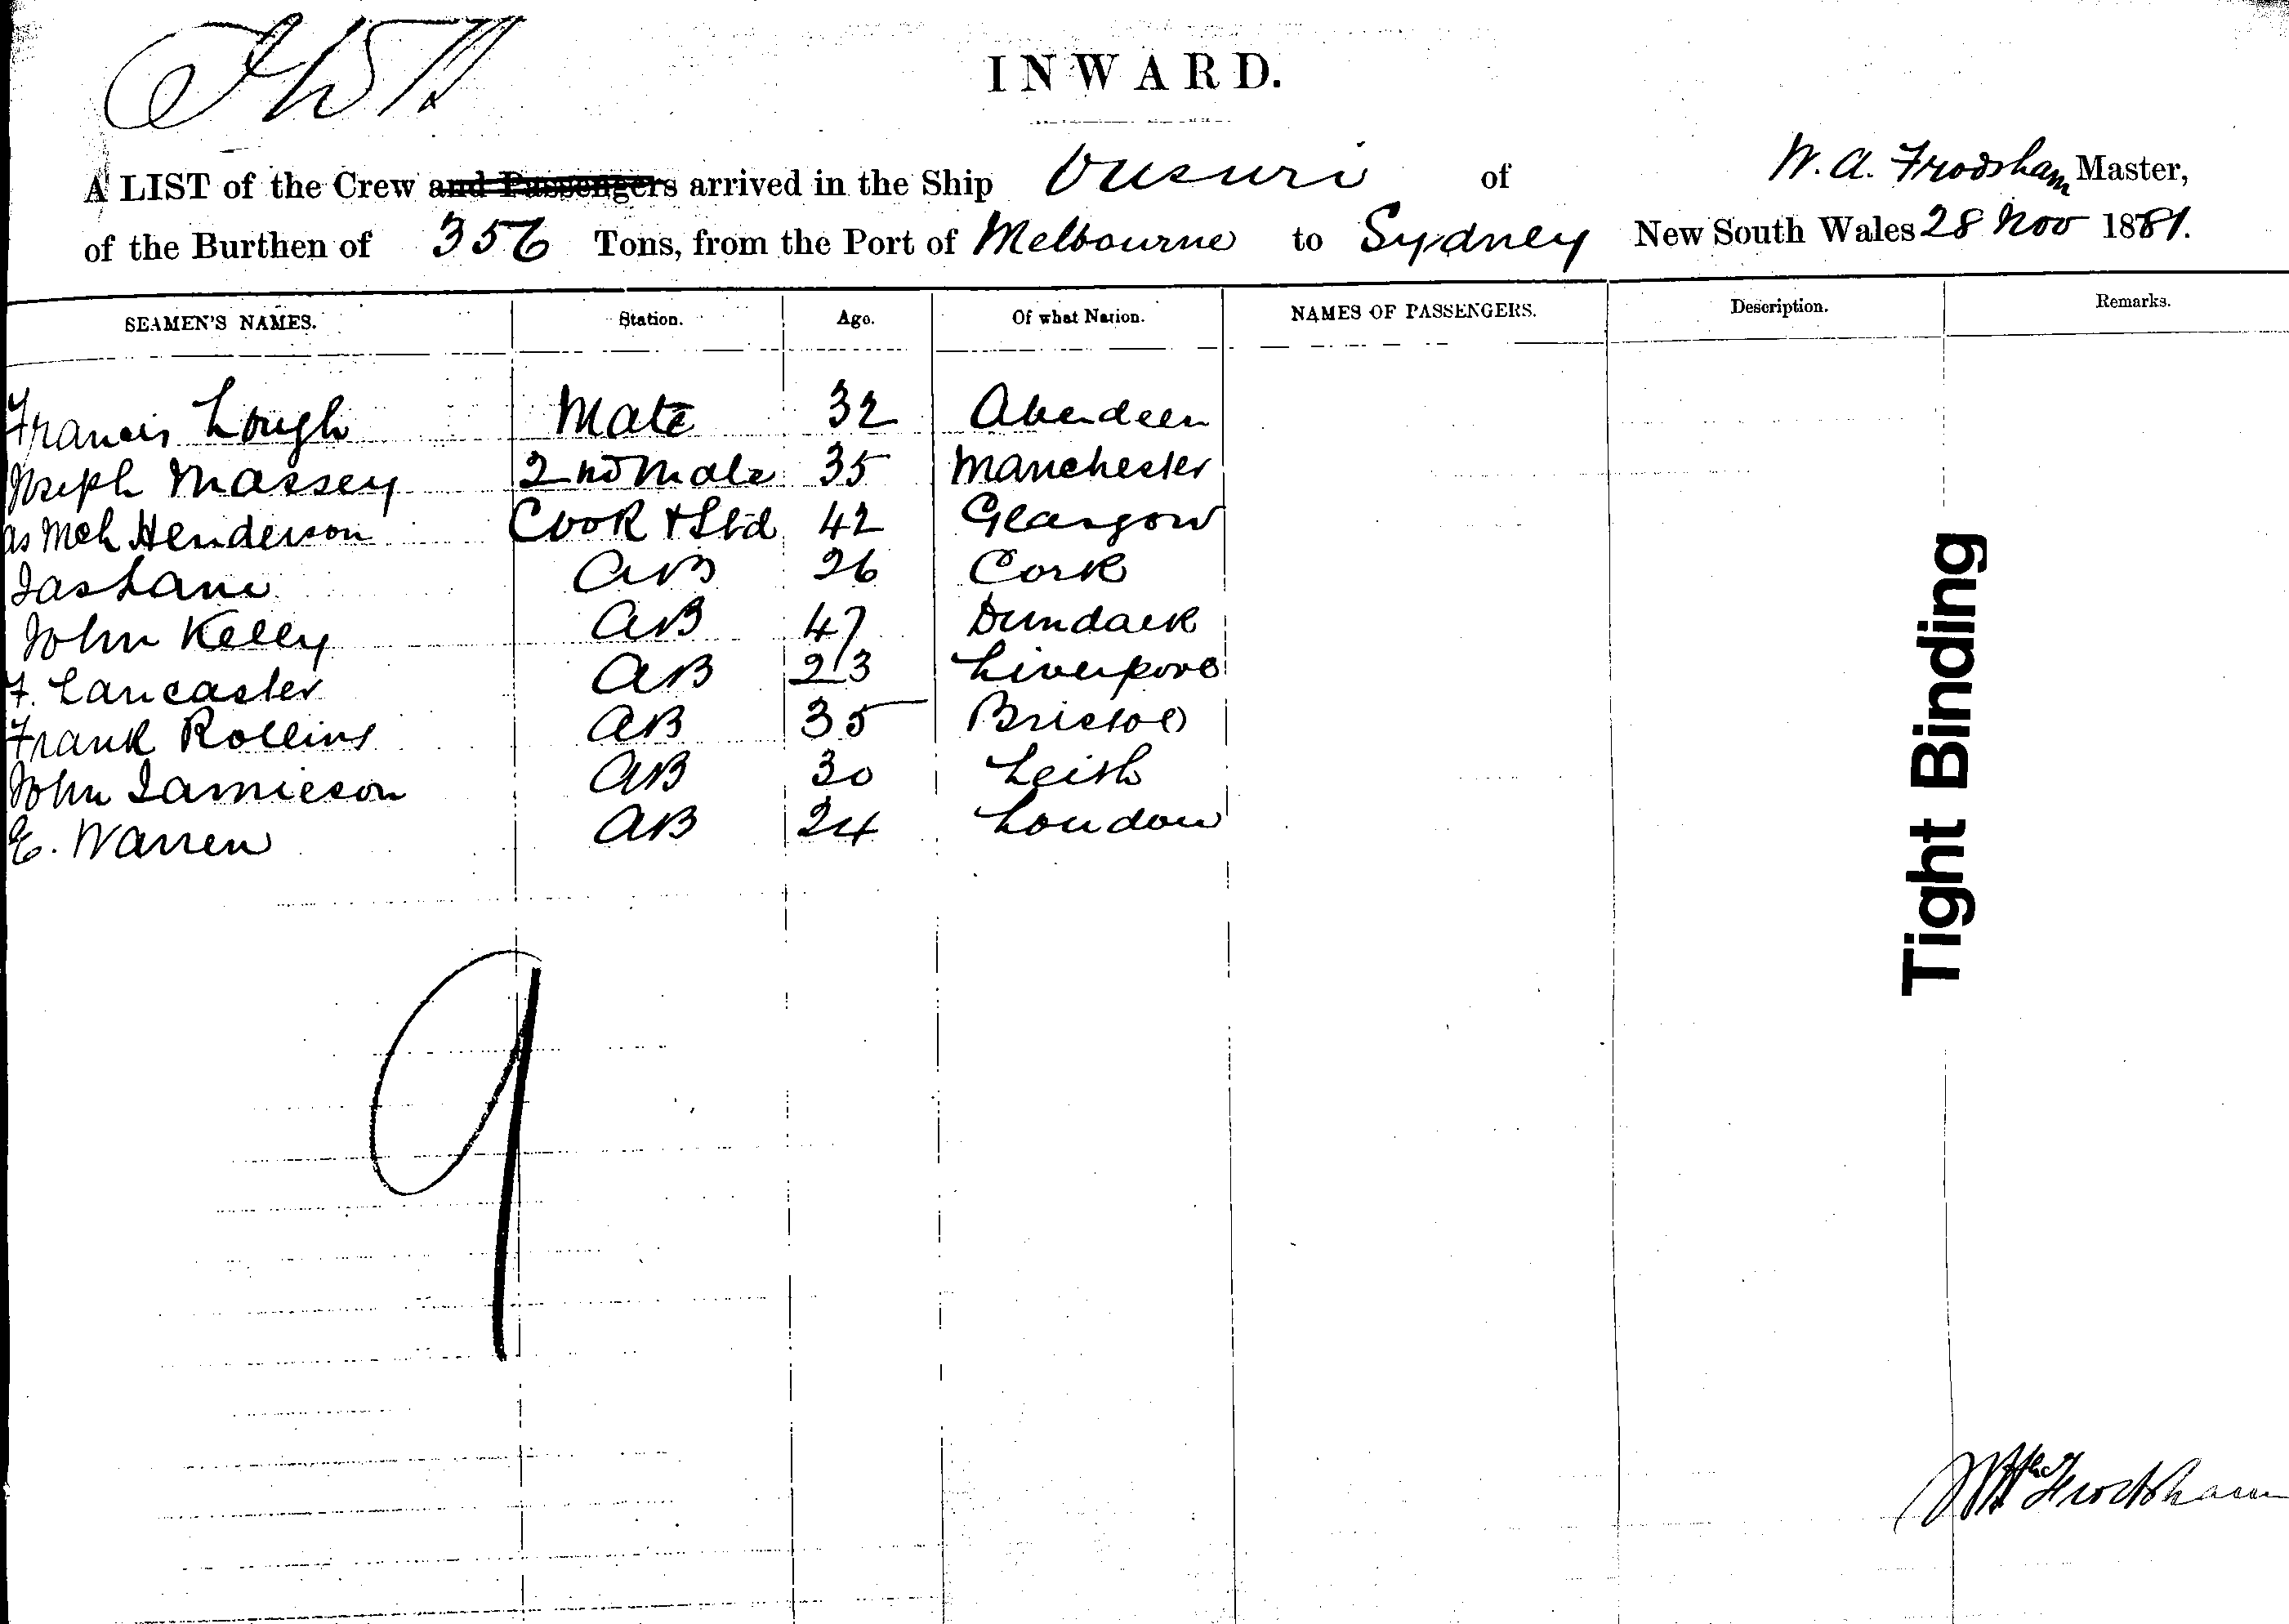 INWARD.
A LIST of the Crew and Passengers arrived in the Ship Ousuri of W. A. Frodsham Master,
of the Burthen of 356 Tons, from the Port of Melbourne to Sydney New South Wales 28 Nov 1881.
SEAMEN'S NAMES. Station. Age. Of what Nation. NAMES OF PASSENGERS. Description. Remarks.
Francis Lough Mate 32 Aberdeen
Joseph Massey 2nd Mate 35 Manchester
as McH Henderson Cook & Std 42 Glasgow
Jas Lane AB 26 Cork
John Kelly AB 47 Dundalk
F. Lancaster AB 23 Liverpool
Frank Rollins AB 35 Bristol
John Jamieson AB 30 Leith
E. Warren AB 24 London
Tight Binding
9
Frodsham